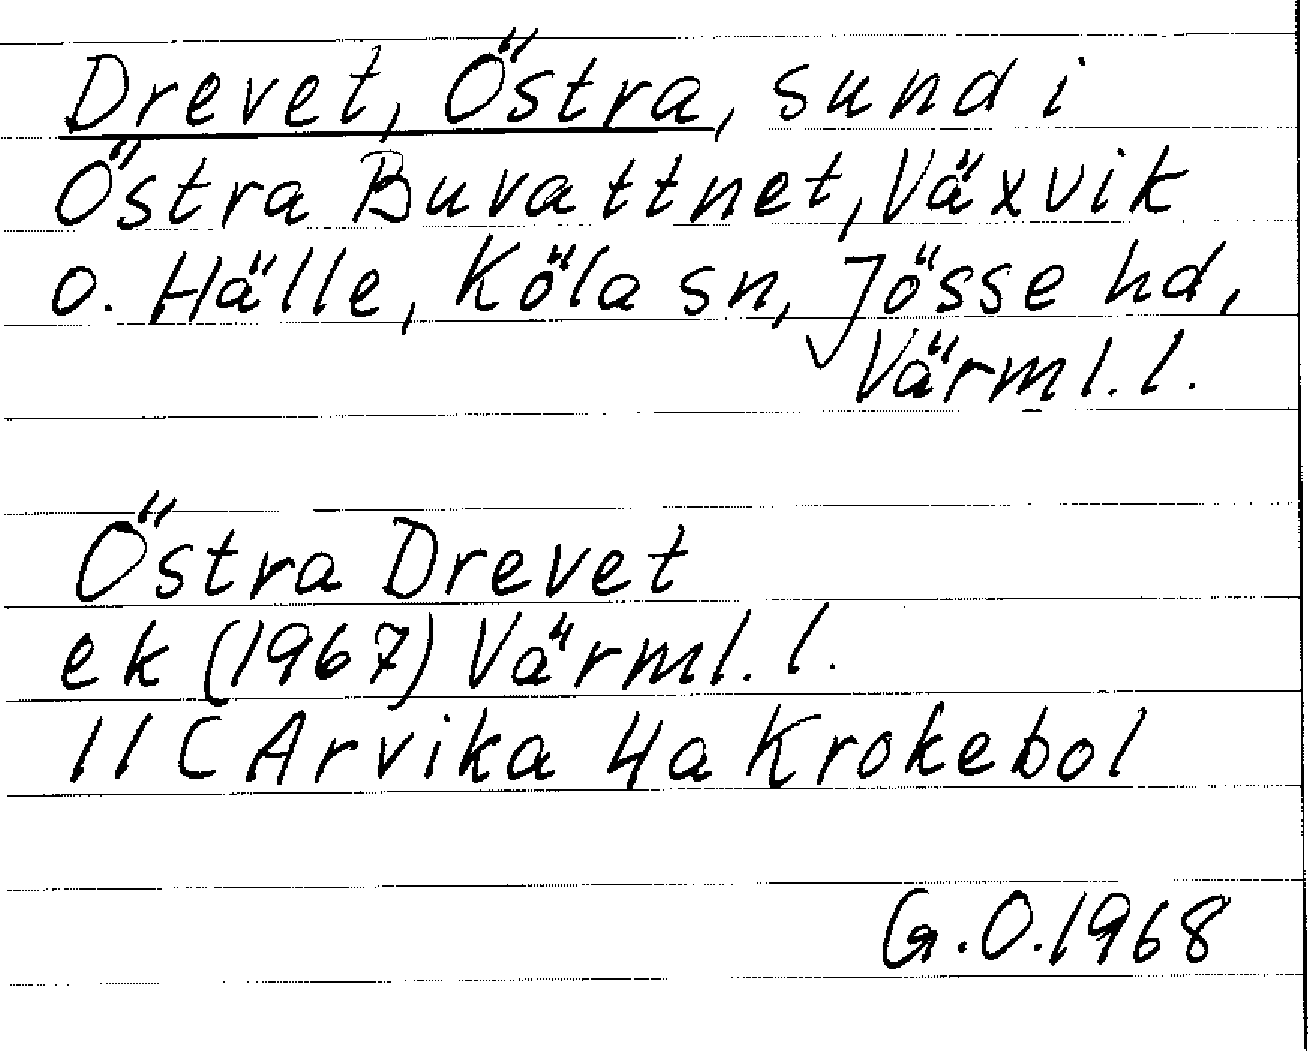 Drevet, Östra, sund i
Östra Buvattnet, Växvik
o. Hälle, Köla sn, Jösse hd,
Värml. l.
Östra Drevet
ek (1967) Värml. l.
11 C Arvika 4a Krokebol
G.O. 1968